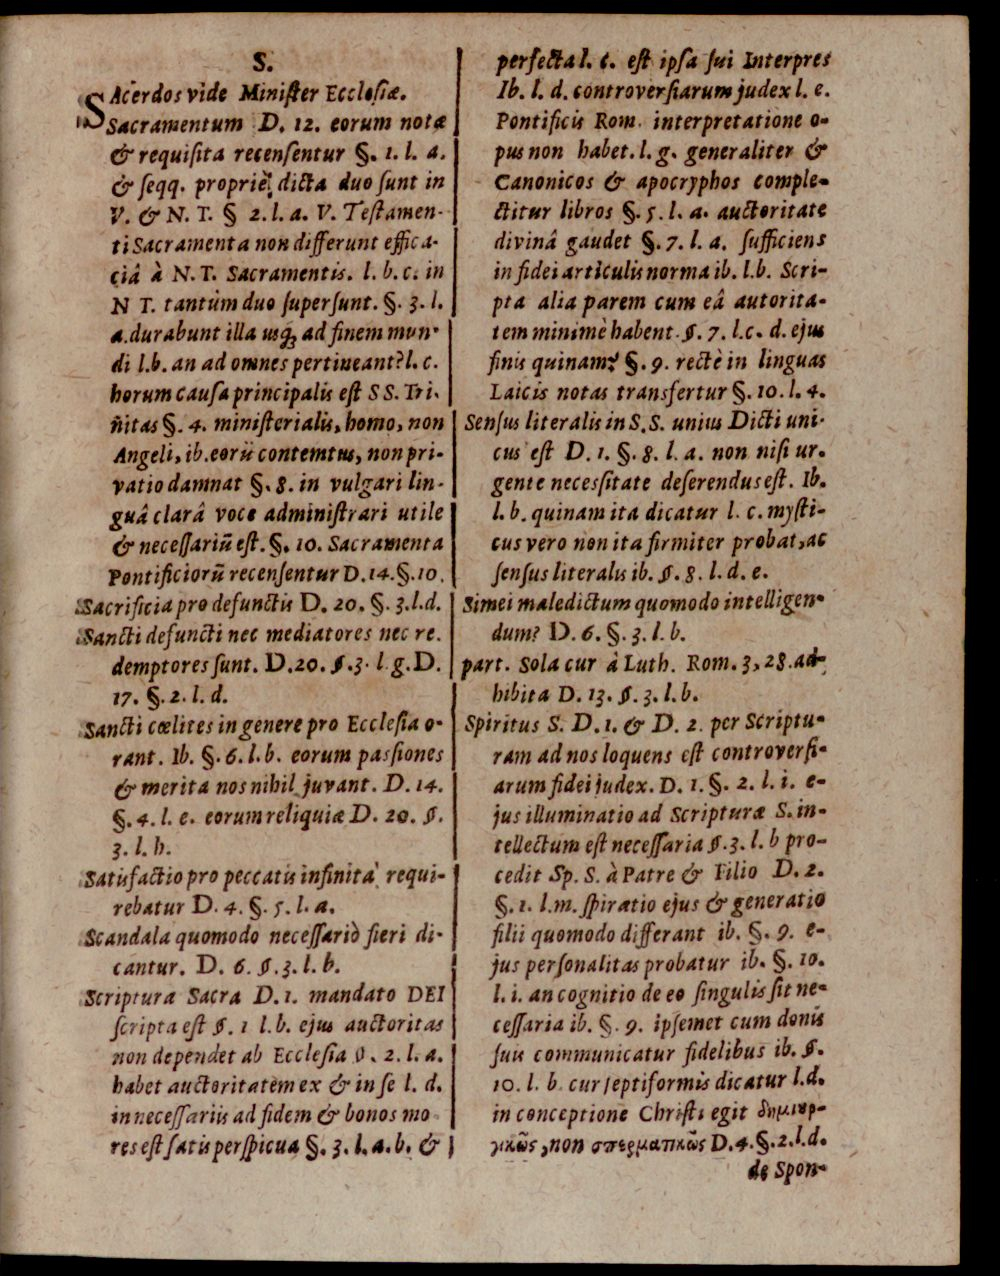 S.
SAcerdos vide Miniſter Eccleſiæ.
Sacramentum D. 12. eorum notæ
& requiſita recenſentur §. 1. l. a.
& ſeqq. propriè dicta duo ſunt in
V. & N. T. § 2. l. a. V. Teſtamen-
ti Sacramenta non differunt effica-
ciâ à N. T. Sacramentis. l. b. c. in
N T. tantùm duo ſuperſunt. §. 3. l.
a. durabunt illa usq; ad finem mun-
di l.b. an ad omnes pertineant? l. c.
horum cauſa principalis eſt SS. Tri-
nitas §. 4. miniſterialis, homo, non
Angeli, ib. eorũ contemtus, non pri-
vatio damnat §. 8. in vulgari lin-
guâ clarâ voce adminiſtrari utile
& neceſſariũ eſt. §. 10. Sacramenta
Pontificiorũ recenſentur D. 14. §. 10.
Sacrificia pro defunctis D. 20. §. 3. l. d.
Sancti defuncti nec mediatores nec re-
demptores ſunt. D. 20. §. 3. l. g. D.
17. §. 2. l. d.
Sancti cœlites in genere pro Eccleſia o-
rant. Ib. §. 6. l. b. eorum paſsiones
& merita nos nihil juvant. D. 14.
§. 4. l. e. eorum reliquiæ D. 20. §.
3. l. h.
Satisfactio pro peccatis infinita requi-
rebatur D. 4. §. 5. l. a.
Scandala quomodo neceſſariò fieri di-
cantur. D. 6. §. 3. l. b.
Scriptura Sacra D. 1. mandato DEI
ſcripta eſt §. 1 l. b. ejus auctoritas
non dependet ab Eccleſia §. 2. l. a.
habet auctoritatem ex & in ſe l. d.
in neceſſariis ad fidem & bonos mo
res eſt ſatis perſpicua §. 3. l. a. b. &
perfecta l. c. eſt ipſa ſui Interpres
Ib. l. d. controverſiarum judex l. e.
Pontificis Rom. interpretatione o-
pus non habet. l. g. generaliter &
Canonicos & apocryphos comple-
ctitur libros §. 5. l. a. auctoritate
divinâ gaudet §. 7. l. a. ſufficiens
in fidei articulis norma ib. l. b. Scri-
pta alia parem cum eâ autorita-
tem minimè habent. §. 7. l. c. d. ejus
finis quinam? §. 9. rectè in linguas
Laicis notas transfertur §. 10. l. 4.
Senſus literalis in S. S. unius Dicti uni-
cus eſt D. 1. §. 8. l. a. non niſi ur-
gente neceſsitate deſerendus eſt. Ib.
l. b. quinam ita dicatur l. c. myſti-
cus vero non ita firmiter probat, ac
ſenſus literalis ib. §. 8. l. d. e.
Simei maledictum quomodo intelligen-
dum? D. 6. §. 3. l. b.
part. Sola cur à Luth. Rom. 3, 28. ad-
hibita D. 13. §. 3. l. b.
Spiritus S. D. 1. & D. 2. per Scriptu-
ram ad nos loquens eſt controverſi-
arum fidei judex. D. 1. §. 2. l. i. e-
jus illuminatio ad Scripturæ S. in-
tellectum eſt neceſſaria §. 3. l. b pro-
cedit Sp. S. à Patre & Filio D. 2.
§. 1. l. m. ſpiratio ejus & generatio
filii quomodo differant ib. §. 9. e-
jus perſonalitas probatur ib. §. 10.
l. i. an cognitio de eo ſingulis ſit ne-
ceſſaria ib. §. 9. ipſemet cum donis
ſuis communicatur fidelibus ib. §.
10. l. b. cur ſeptiformis dicatur l. d.
in conceptione Chriſti egit δημιυρ-
γικῶς, non σπερματικῶς D. 4. §. 2. l. d.
de Spon-